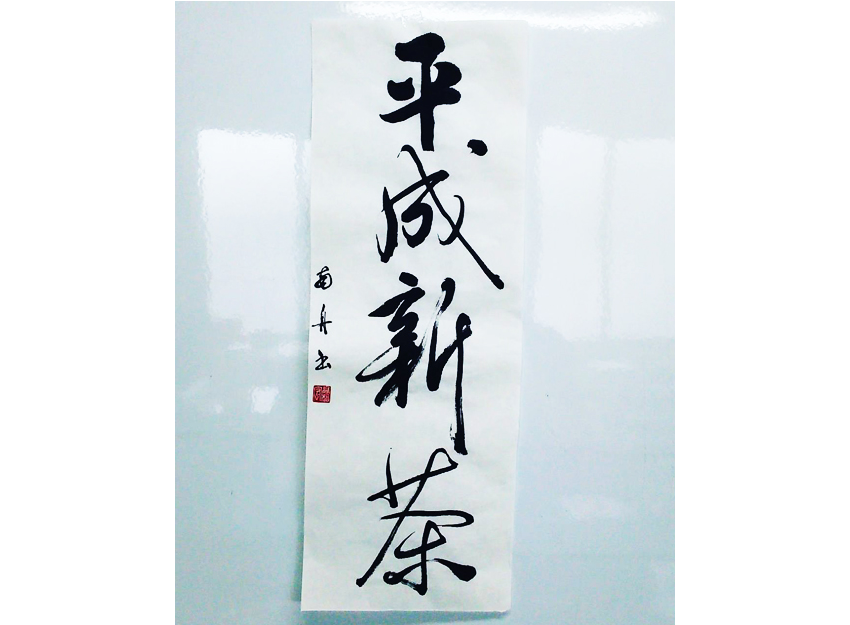 平成新茶
南舟书